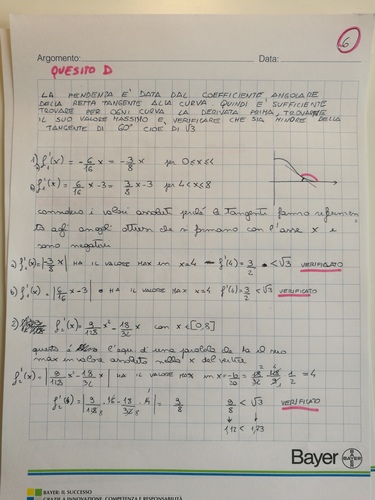 6
Argomento: Data:
QUESITO D
LA PENDENZA E' DATA DAL COEFFICIENTE ANGOLARE
DELLA RETTA TANGENTE ALLA CURVA. QUINDI E' SUFFICIENTE
TROVARE PER OGNI CURVA LA DERIVATA PRIMA, TROVARNE
IL SUO VALORE MASSIMO E VERIFICARE CHE SIA MINORE DELLA
TANGENTE DI 60° CIOE DI √3
1) f₁'(x) = -6/16 x = -3/8 x per 0≤x≤4
f₁'(x) = 6/16 x - 3 = 3/8 x - 3 per 4<x≤8
i valori assoluti perché la tangente fanno
agli angoli che si formano con l'asse x e
sono negativi
a) f₁'(x) = |-3/8 x| HA IL VALORE MAX in x=4 f'(4) = 3/2 < √3 VERIFICATO
b) f₁'(x) = |6/16 x - 3| HA IL VALORE MAX x=4 f'(4) = 3/2 < √3 VERIFICATO
2) f₂'(x) = 9/128 x² - 18/32 x con x∈[0,8]
questa è l'eq. di una parabola che ha il suo
max in valore assoluto nella x del vertice
f₂'(x) = |9/128 x² - 18/32 x| HA IL VALORE MAX in x = -b/2a = = 4
f₂'(4) = |9/128 · 16 - 18/32 · 4| = 9/8 9/8 < √3 VERIFICATO
1,12 < 1,73
Bayer
BAYER: IL SUCCESSO
GRAZIE A INNOVAZIONE, COMPETENZA E RESPONSABILITÀ